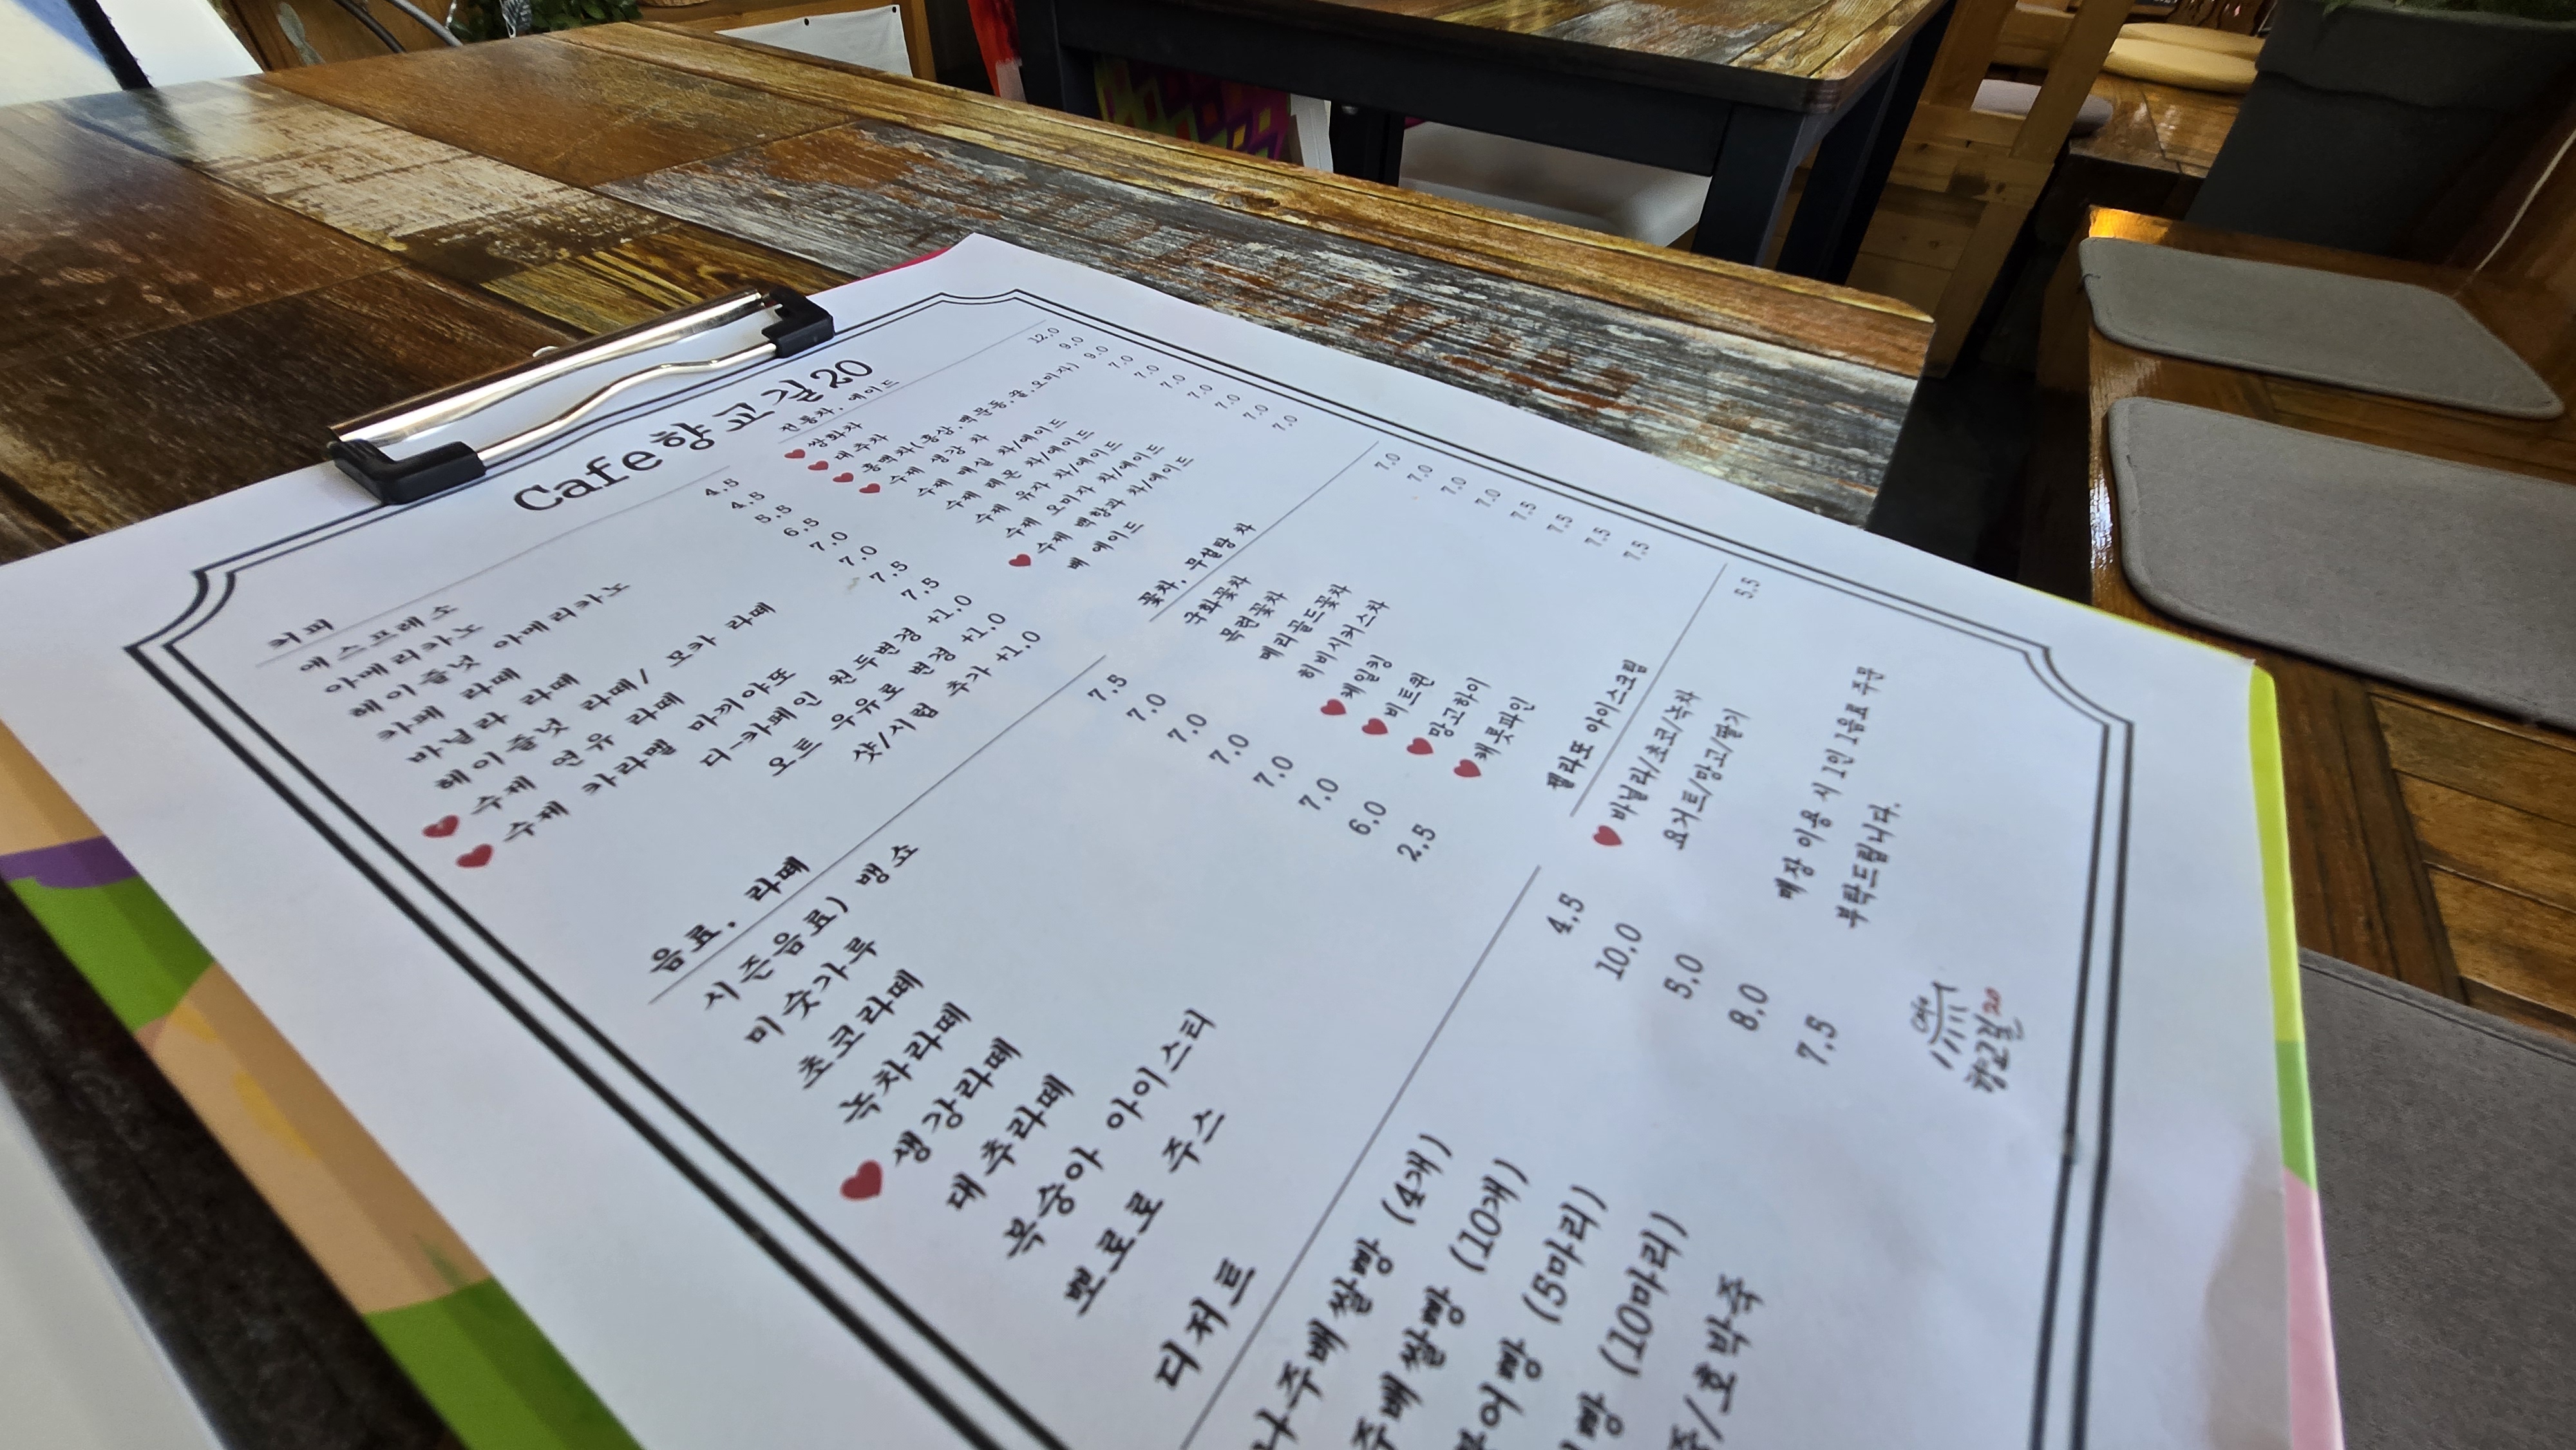 Cafe향교길20
커피
에스프레소 4.5
아메리카노 4.5
헤이즐넛 아메리카노 5.5
카페 라떼 6.5
바닐라 라떼 7.0
헤이즐넛 라떼/ 모카 라떼 7.0
♥ 수제 연유 라떼 7.5
♥ 수제 카라멜 마끼야또 7.5
디-카페인 원두변경 +1.0
오트 우유로 변경 +1.0
샷/시럽 추가 +1.0
음료, 라떼
시즌음료) 뱅쇼 7.5
미숫가루 7.0
초코라떼 7.0
녹차라떼 7.0
♥ 생강라떼 7.0
대추라떼 7.0
복숭아 아이스티 6.0
뽀로로 주스 2.5
디저트
나주배쌀빵 (4개) 4.5
주배쌀빵 (10개) 10.0
어빵 (5마리) 5.0
빵 (10마리) 8.0
죽/호박죽 7.5
전통차, 에이드
♥ 쌍화차 12.0
♥ 대추차 9.0
♥ 홍맥차(홍삼,맥문동,꿀,오미자) 9.0
♥ 수제 생강 차 7.0
수제 매실 차/에이드 7.0
수제 레몬 차/에이드 7.0
수제 유자 차/에이드 7.0
수제 오미자 차/에이드 7.0
♥ 수제 백향과 차/에이드 7.0
배 에이드 7.0
꽃차, 무설탕 차
국화꽃차 7.0
목련꽃차 7.0
메리골드꽃차 7.0
히비시커스차 7.0
♥ 케일킹 7.5
♥ 비트퀸 7.5
♥ 망고하이 7.5
♥ 캐롯파인 7.5
젤라또 아이스크림
♥ 바닐라/초코/녹차 5.5
요거트/망고/딸기
매장 이용 시 1인 1음료 주문
부탁드립니다.
Cafe
향교길20